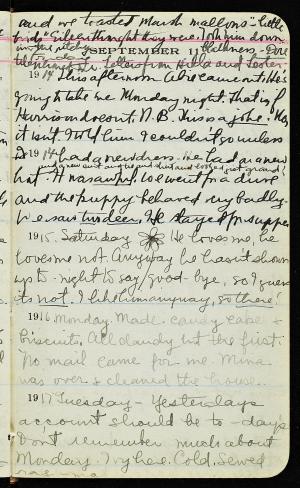 and we toasted Marsh mallows "Little
birds" Eileen thought they were. Took him down
in the pitchy flatness - Gee
SEPTEMBER 11
Letters from Hilla and Lester.
1914 This afternoon Al is come out. He's
going to take me Monday night. That is if
Harrison doesn't. N.B. This is a joke. Hey
it isn't. I told him I couldn't go unless
I 1914 had a new dress. He had on a new
hat. It was awful. So we went for a drive
and the puppy behaved very badly.
We saw two deer. He stayed for supper
1915. Saturday He loves me, he
loves me not. Anyway he hasn't shown
up to-night to say good-bye, so I guess
its not. I like him anyway, so there!
1916 Monday. Made candy cake &
biscuits. All dandy but the first.
No mail came for me. Mina
was over & cleaned the house.
1917 Tuesday - Yesterdays
account should be to-day's
Don't remember much about
Monday. Ivy here. Cold. Sewed